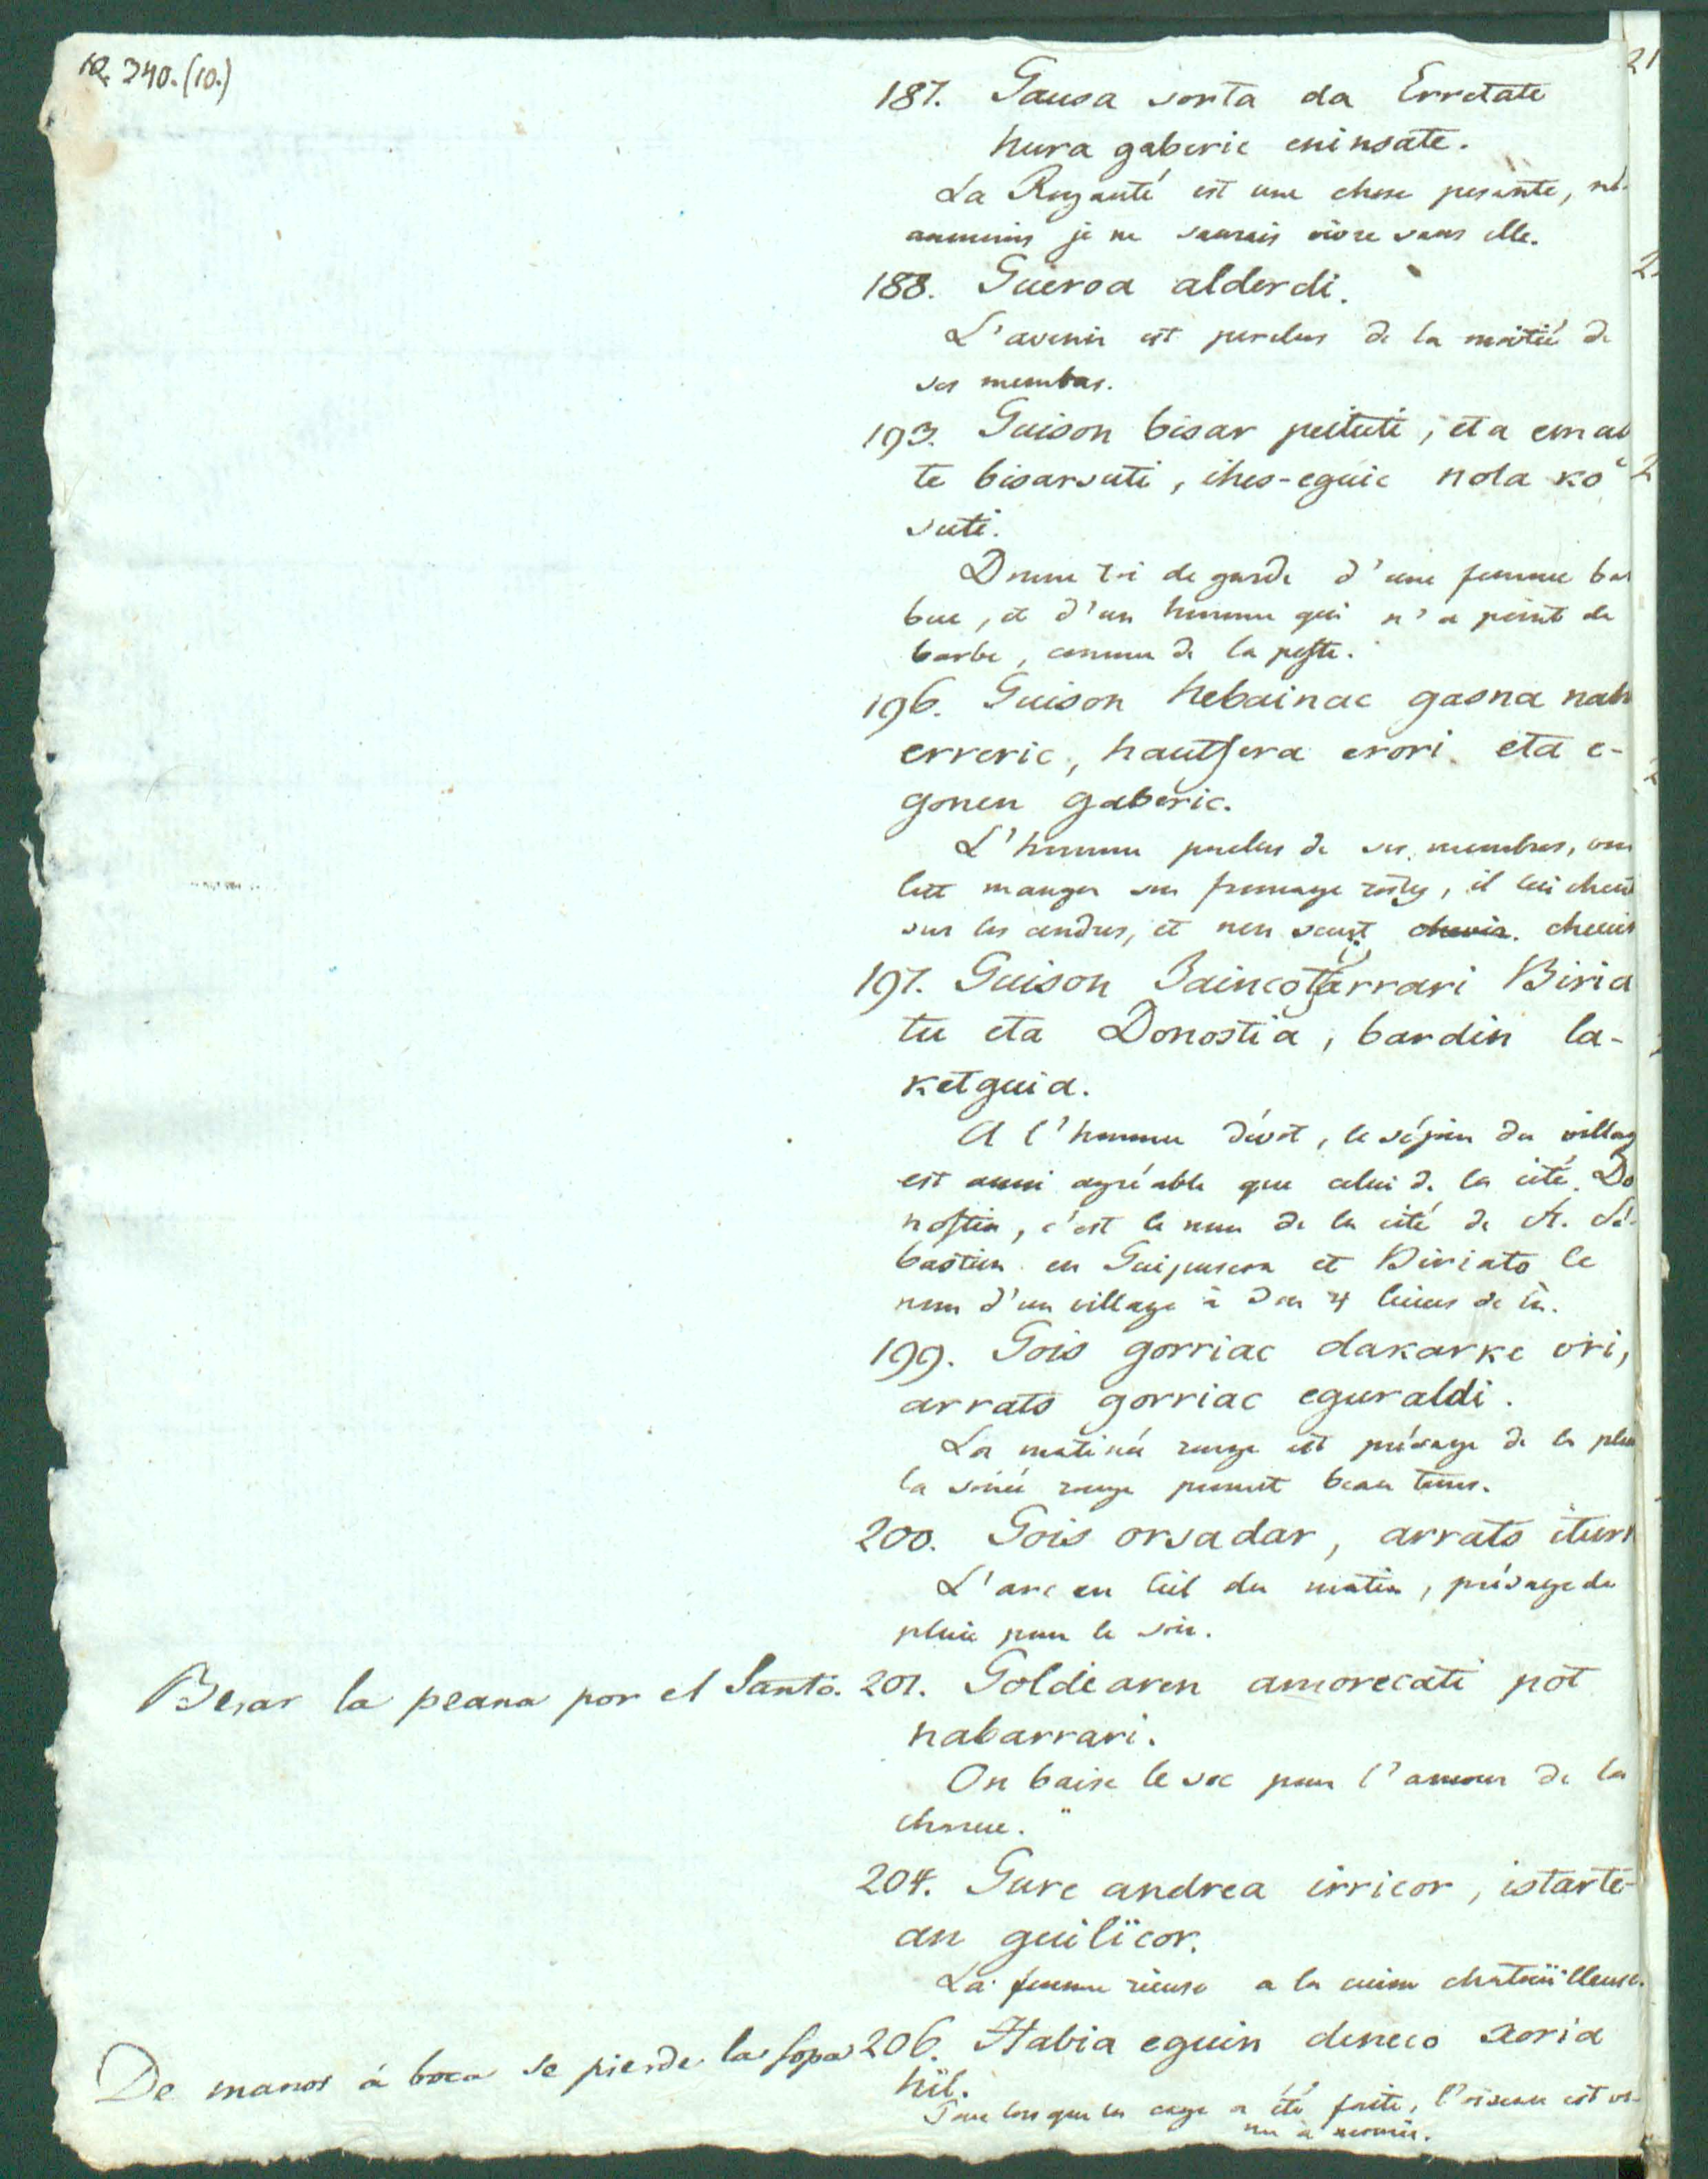 10. 240. (10.)
187. Gausa sorta da Erretate
hura gaberic eninsate.
La Royauté est une chose pesante, né-
anmoins je ne saurais vivre sans elle.
188. Gueroa alderdi.
L'avenir est perclus de la moitié de
ses membres.
193. Guison bisar peituti, eta emas
te bisarsuti, ihes-eguic nola ko
suti.
Donne toi de garde d'une femme bar
bue, et d'un homme qui n'a point de
barbe, comme de la peste.
196. Guison hebainac gasna nah
erreric, hautsera erori eta e-
gonen gaberic.
L'homme perclus de ses membres, vou
lut manger son fromage rosty, il lui cheut
sur les cendres, et n'en sceut chevir
197. Guison Jaincotiarrari Biria
tu eta Donostia, bardin la-
ketguia.
A l'homme dévot, le séjour du villag
est aussi agréable que celui de la cité. Do
nostia, c'est le nom de la cité de St. Sé-
bastien en Guipuscoa et Biriato le
nom d'un village à 3 ou 4 lieues de là.
199. Gois gorriac dakarke uri,
arrats gorriac eguraldi.
La matinée rouge est présage de la plui
la soirée rouge promet beau tems.
200. Gois orsadar, arrats iturri
L'arc en Ciel du matin, présage de
pluie pour le soir.
Besar la peana por el Santo. 201. Goldearen amorecati pot
nabarrari.
On baise le soc pour l'amour de la
charue.
204. Gure andrea irricor, istarte-
an guilicor.
La femme rieuse a la cuisse chatouilleuse.
De manos á boca se pierde la sopa 206. Habia eguin deneco xoria
hil.
Pour lors que la cage a été faite, l'oiseau est ve-
nu à mourir.